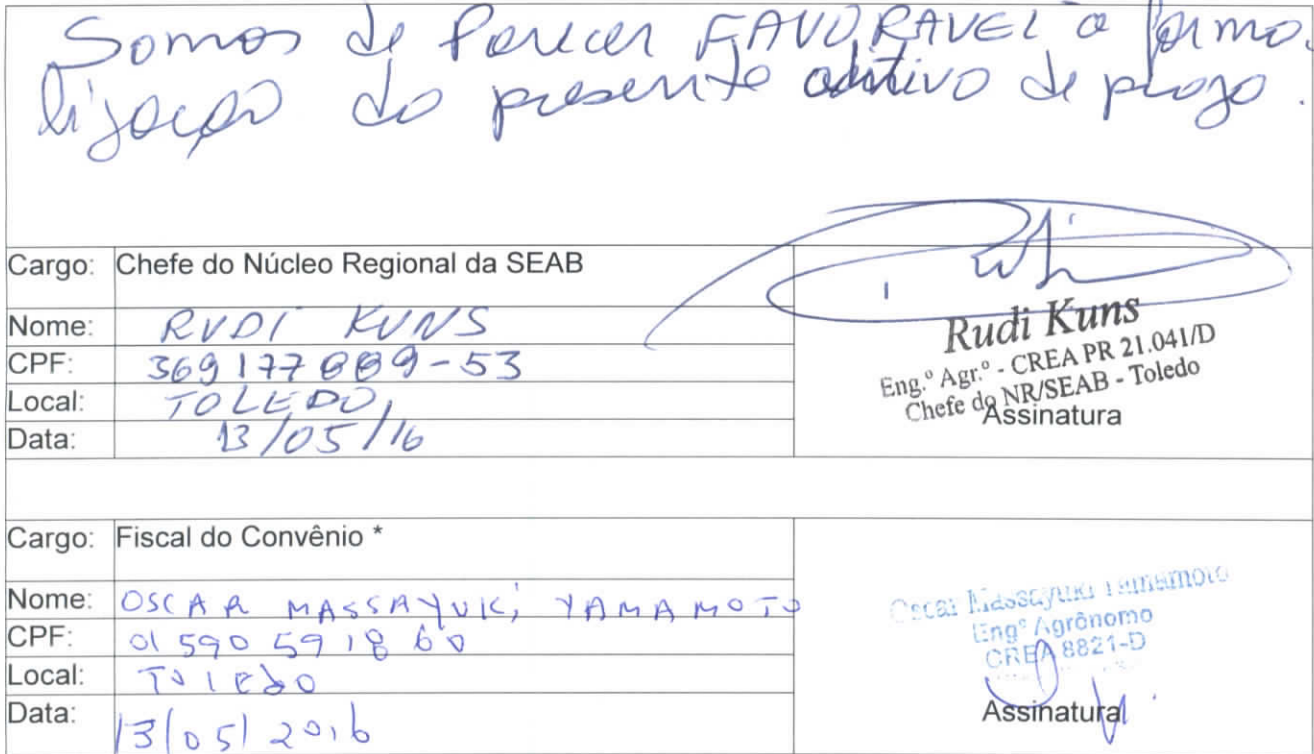 Somos de Parecer FAVORAVEL a forma.
lização do presente aditivo de prazo.
Cargo: Chefe do Núcleo Regional da SEAB
Nome: RUDI KUNS
CPF: 369177889-53
Local: TOLEDO,
Data: 13/05/16
Rudi Kuns
Eng.º Agr.º - CREA PR 21.041/D
Chefe do NR/SEAB - Toledo
Assinatura
Cargo: Fiscal do Convênio *
Nome: OSCAR MASSAYUKI YAMAMOTO
CPF: 01590591860
Local: Toledo
Data: 13/05/2016
Oscar Massayuki Yamamoto
Engº Agrônomo
CREA 8821-D
Assinatura